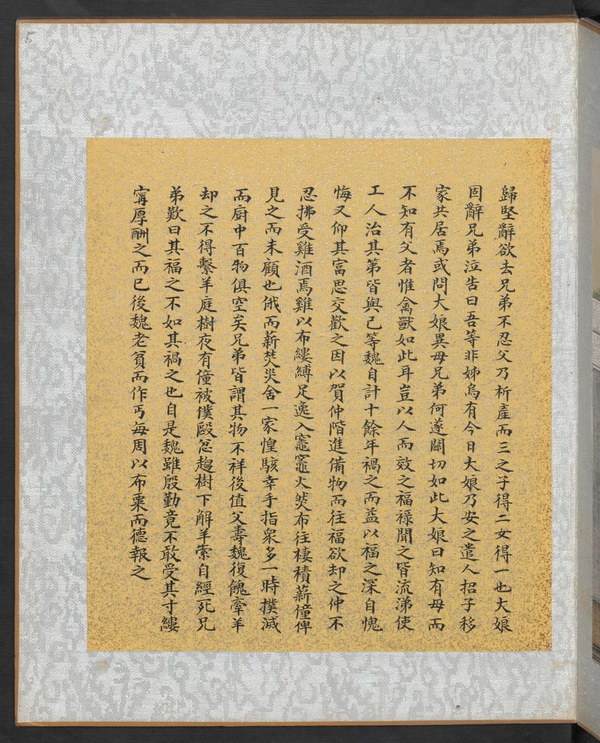 5
歸堅辭欲去兄弟不忍父乃析產而三之子得二女得一也大娘
固辭兄弟泣告曰吾等非姊烏有今日大娘乃安之遣人招子移
家共居焉或問大娘異母兄弟何遂關切如此大娘曰知有母而
不知有父者惟禽獸如此耳豈以人而效之福祿聞之皆流涕使
工人治其第皆與己等魏自計十餘年禍之而益以福之深自愧
悔又仰其富思交歡之因以賀仲階進備物而往福欲却之仲不
忍拂受雞酒焉雞以布縷縛足逸入竈竈火燃布往棲積薪僮婢
見之而未顧也俄而薪焚災舍一家惶駭幸手指衆多一時撲滅
而厨中百物俱空矣兄弟皆謂其物不祥後值父壽魏復餽牽羊
却之不得繫羊庭樹夜有僮被僕毆忿趨樹下解羊索自經死兄
弟歎曰其福之不如其禍之也自是魏雖殷勤竟不敢受其寸縷
寧厚酬之而已後魏老貧而作丐每周以布粟而德報之